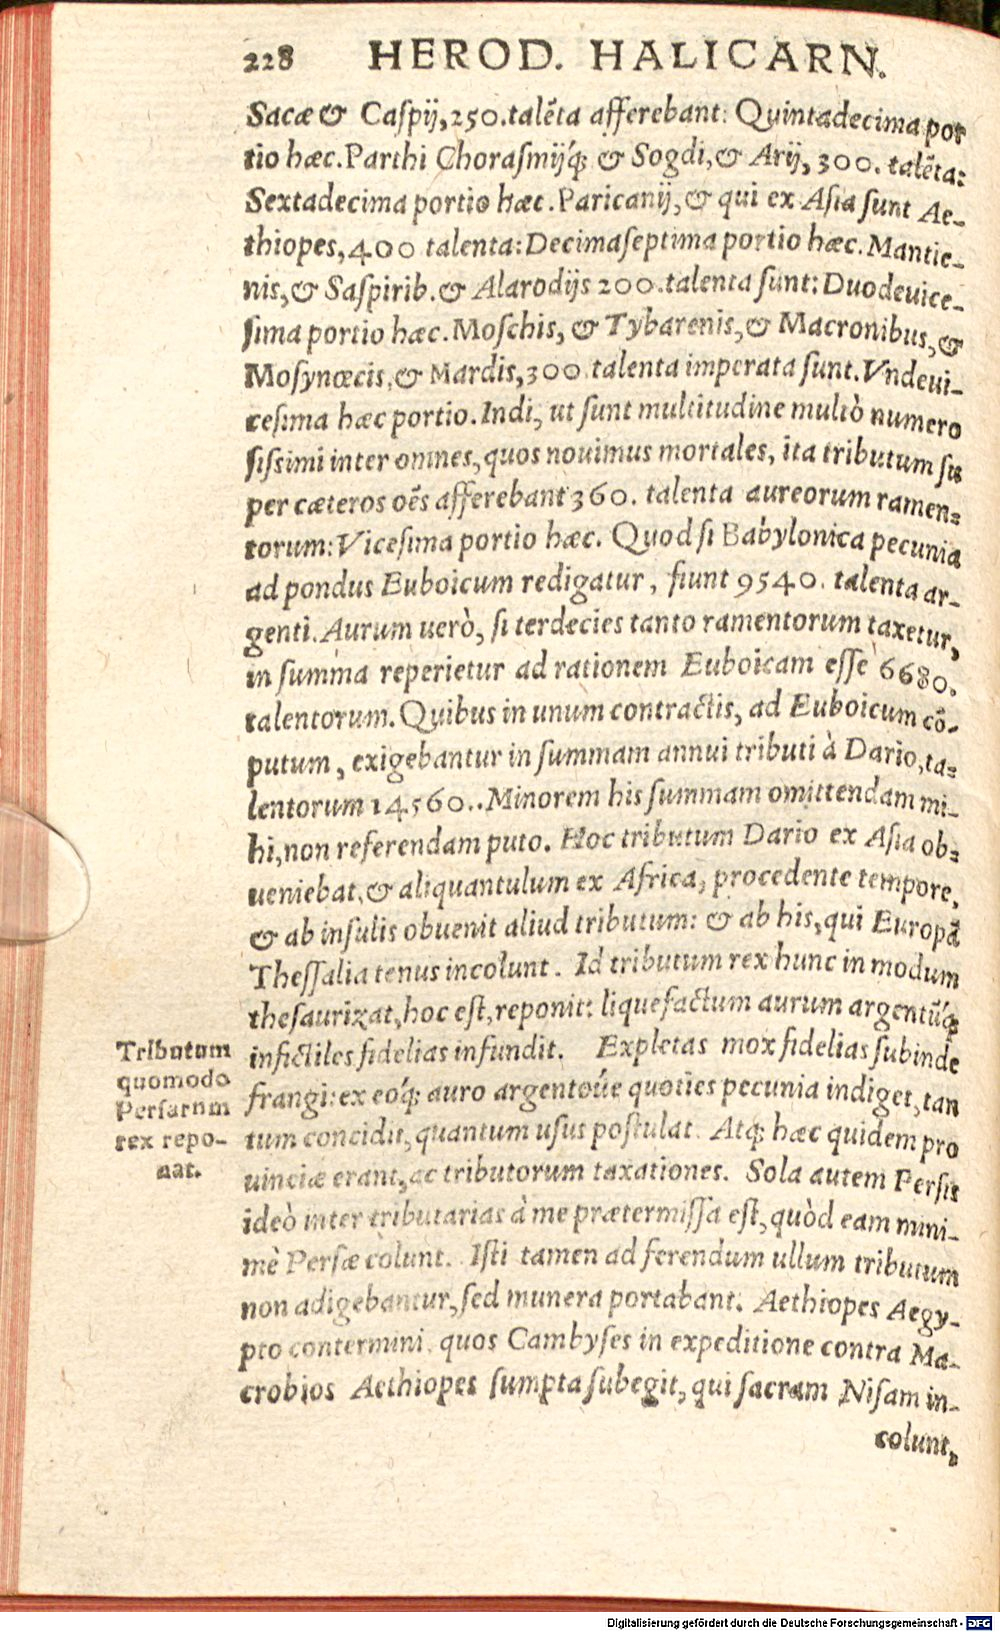 228 HEROD. HALICARN.
Sacæ & Caſpij, 250. talẽta afferebant: Quintadecima por
tio hæc. Parthi Choraſmijq́; & Sogdi, & Arij, 300. talẽta:
Sextadecima portio hæc. Paricanij, & qui ex Aſia ſunt Ae-
thiopes, 400 talenta: Decimaſeptima portio hæc. Mantie-
nis, & Saſpirib. & Alarodijs 200. talenta ſunt: Duodeuice-
ſima portio hæc. Moſchis, & Tybarenis, & Macronibus, &
Moſynœcis, & Mardis, 300 talenta imperata ſunt. Vndeui-
ceſima hæc portio. Indi, ut ſunt multitudine multò numero
ſiſsimi inter omnes, quos nouimus mortales, ita tributum ſu
per cæteros oẽs afferebant 360. talenta aureorum ramen=
torum: Viceſima portio hæc. Quod ſi Babylonica pecunia
ad pondus Euboicum redigatur, fiunt 9540. talenta ar-
genti. Aurum uerò, ſi terdecies tanto ramentorum taxetur,
in ſumma reperietur ad rationem Euboicam eſſe 6680.
talentorum. Quibus in unum contractis, ad Euboicum cõ-
putum, exigebantur in ſummam annui tributi à Dario, ta=
lentorum 14560.. Minorem his ſummam omittendam mi-
hi, non referendam puto. Hoc tributum Dario ex Aſia ob=
ueniebat, & aliquantulum ex Africa, procedente tempore,
& ab inſulis obuenit aliud tributum: & ab his, qui Europã
Theſſalia tenus incolunt. Id tributum rex hunc in modum
theſaurizat, hoc eſt, reponit: liquefactum aurum argentũq́;
in fictiles fidelias infundit. Expletas mox fidelias ſubinde
frangi: ex eoq́; auro argentoúe quoties pecunia indiget, tan
tum concidit, quantum uſus poſtulat. Atq; hæc quidem pro
uinciæ erant, ac tributorum taxationes. Sola autem Perſis
ideò inter tributarias à me prætermiſſa eſt, quòd eam mini-
mè Perſæ colunt. Iſti tamen ad ferendum ullum tributum
non adigebantur, ſed munera portabant. Aethiopes Aegy-
pto contermini, quos Cambyſes in expeditione contra Ma-
crobios Aethiopes ſumpta ſubegit, qui ſacram Niſam in-
colunt,
Tributum
quomodo
Perſarum
rex repo-
nat.
Digitalisierung gefördert durch die Deutsche Forschungsgemeinschaft - DFG